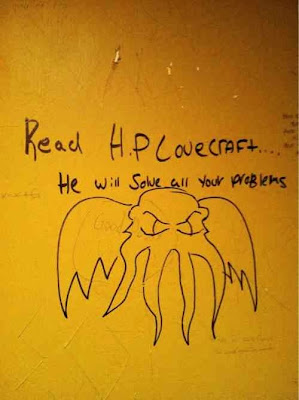 Read H.P Lovecraft....
He will Solve all Your problems